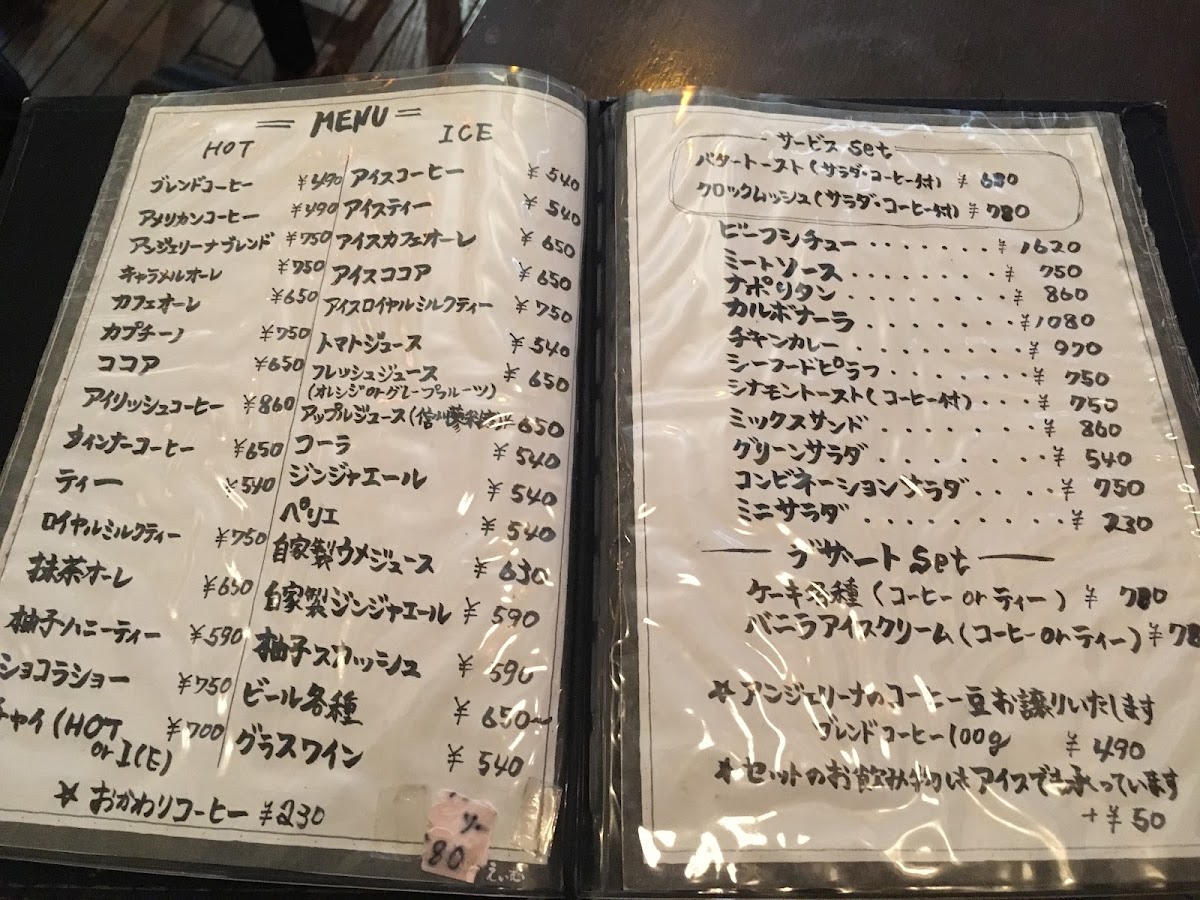 = MENU =
HOT
ブレンドコーヒー ¥490
アメリカンコーヒー ¥490
アンジェリーナブレンド ¥750
キャラメルオーレ ¥750
カフェオーレ ¥650
カプチーノ ¥750
ココア ¥650
アイリッシュコーヒー ¥860
ウィンナーコーヒー ¥650
ティー ¥540
ロイヤルミルクティー ¥750
抹茶オーレ ¥650
柚子ハニーティー ¥590
ショコラショー ¥750
チャイ(HOT ¥700
or ICE)
☆ おかわりコーヒー ¥230
ICE
アイスコーヒー ¥540
アイスティー ¥540
アイスカフェオーレ ¥650
アイスココア ¥650
アイスロイヤルミルクティー ¥750
トマトジュース ¥540
フレッシュジュース ¥650
(オレンジorグレープフルーツ)
アップルジュース(信州 ¥650
コーラ ¥540
ジンジャエール ¥540
ペリエ ¥540
自家製ウメジュース ¥630
自家製ジンジャエール ¥590
柚子スカッシュ ¥590
ビール各種 ¥650〜
グラスワイン ¥540
80
サービス set
バタートースト(サラダ・コーヒー付) ¥680
クロックムッシュ(サラダ・コーヒー付) ¥780
ビーフシチュー ・・・・・・・ ¥1620
ミートソース ・・・・・・・ ¥750
ナポリタン ・・・・・・・ ¥860
カルボナーラ ・・・・・・・ ¥1080
チキンカレー ・・・・・・・ ¥970
シーフードピラフ ・・・・・・ ¥750
シナモントースト(コーヒー付) ・・・・ ¥750
ミックスサンド ・・・・・・・ ¥860
グリーンサラダ ・・・・・・・ ¥540
コンビネーションサラダ ・・・・ ¥750
ミニサラダ ・・・・・・・・ ¥230
デザート set
ケーキ各種(コーヒー or ティー) ¥780
バニラアイスクリーム(コーヒー or ティー) ¥78
☆ アンジェリーナのコーヒー豆お譲りいたします
ブレンドコーヒー100g ¥490
☆ セットのお飲み物はアイスでも承っています
+¥50